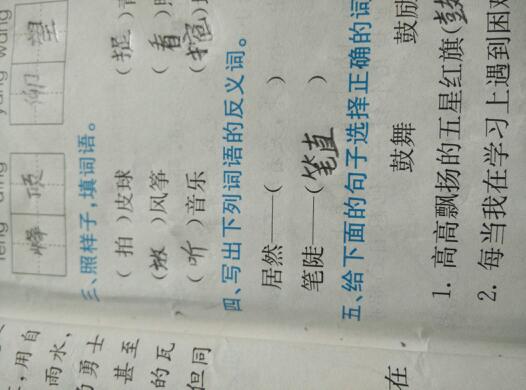 仰望
峰顶
三、照样子,填词语。
(拍)皮球
(放)风筝 (看)
(听)音乐
四、写出下列词语的反义词。
居然——( )
笔陡——(笔直)
五、给下面的句子选择正确的词
鼓舞 鼓励
1. 高高飘扬的五星红旗(
2. 每当我在学习上遇到困难
用自
雨水,
勇士
甚至
的瓦
但同
在